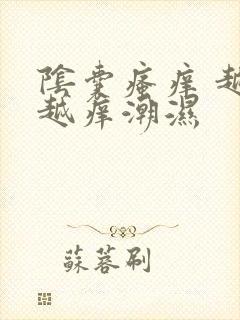 陰囊瘙癢越
越癢潮濕
蘇蓉刷